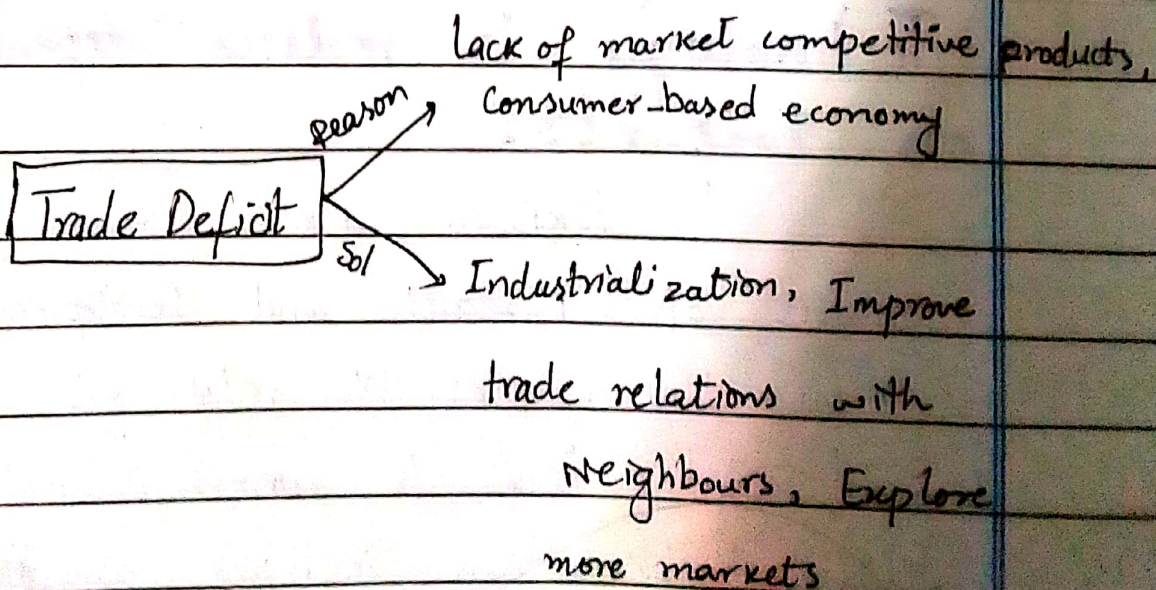 lack of market competitive products,
reason
Consumer-based economy
Trade Deficit
Sol
Industrialization, Improve
trade relations with
Neighbours, Explore
more markets